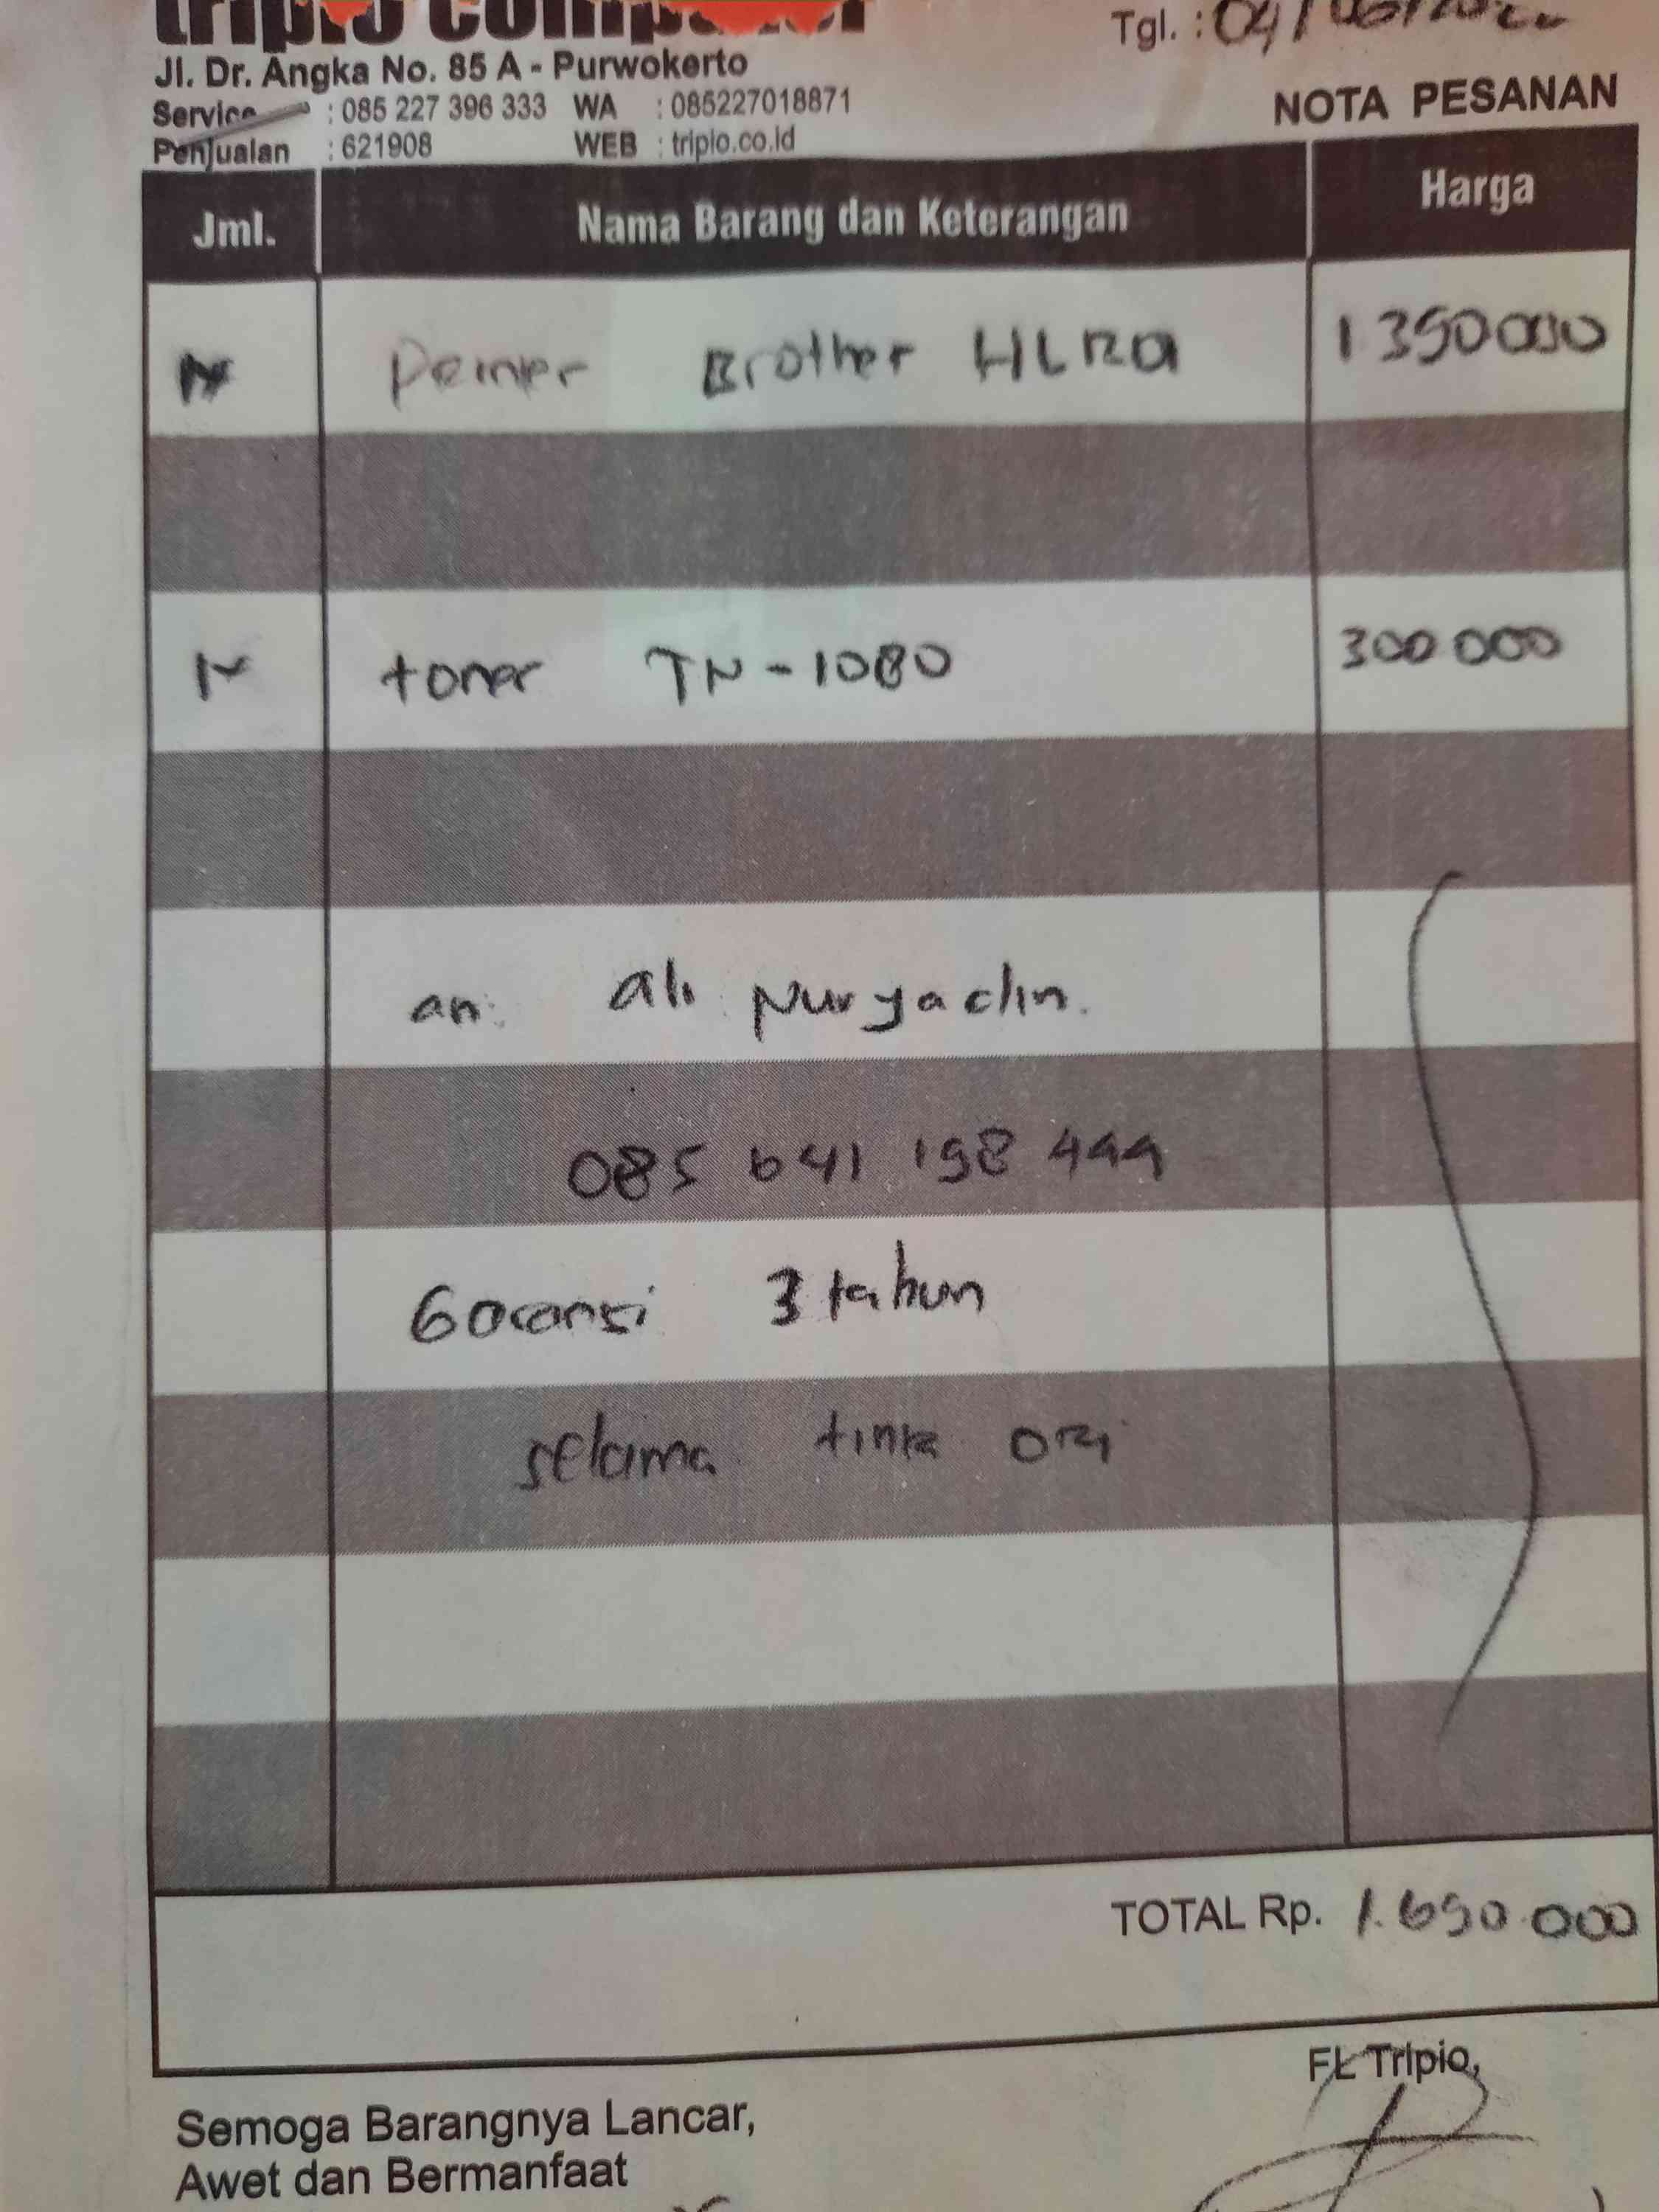 tripio computer
Tgl. : 04/06/
Jl. Dr. Angka No. 85 A - Purwokerto
Service : 085 227 396 333 WA : 085227018871
NOTA PESANAN
Penjualan : 621908 WEB : tripio.co.id
Jml. Nama Barang dan Keterangan Harga
Brother 1350000
toner TN-1080 300 000
an: ali nuryadin.
085 641 198 499
Garansi 3 tahun
selama tinta ori
TOTAL Rp. 1.650.000
FL Tripio,
Semoga Barangnya Lancar,
Awet dan Bermanfaat